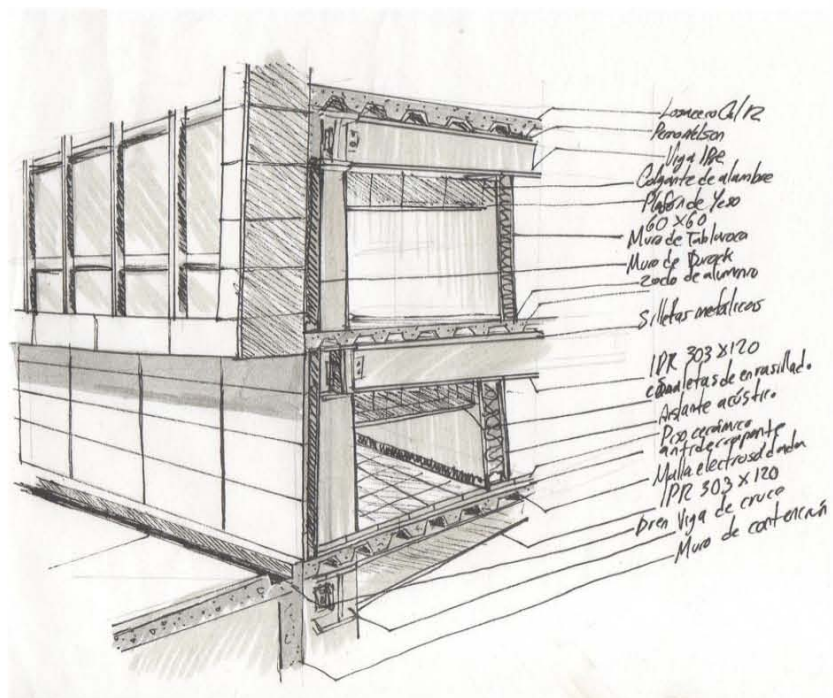 Losacero Cal/12
Perno Nelson
Viga IPE
Colgante de alambre
Plafon de Yeso
60 X 60
Muro de Tablaroca
Muro de
Zoclo de aluminio
Silletas metálicas
IPR 303 X 120
canaletas de enrasillado.
Aislante acústico
Piso cerámico
antiderrapante
Malla electrosoldada
IPR 303 X 120
Dren Viga de cruce
Muro de contención